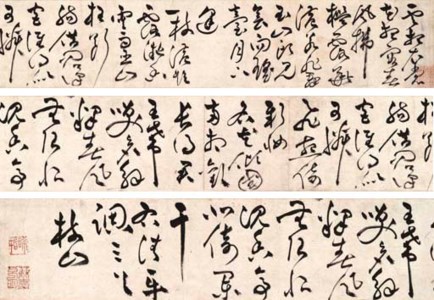 雲想衣裳
花想容春
風拂
檻露華
濃若非群
玉山頭見
會向瑤
臺月下
逢
一枝紅艷
露凝香
雲雨巫山
枉斷
腸借問漢
宮誰得似
可憐
腸借問漢
宮誰得似
可憐
飛燕倚
新妝
名花傾國
兩相歡
長得君
王帶
笑看解
釋春風
無限恨
沉香亭
王帶
笑看解
釋春風
無限恨
沉香亭
北倚闌
干
右清平
調三首
枝山